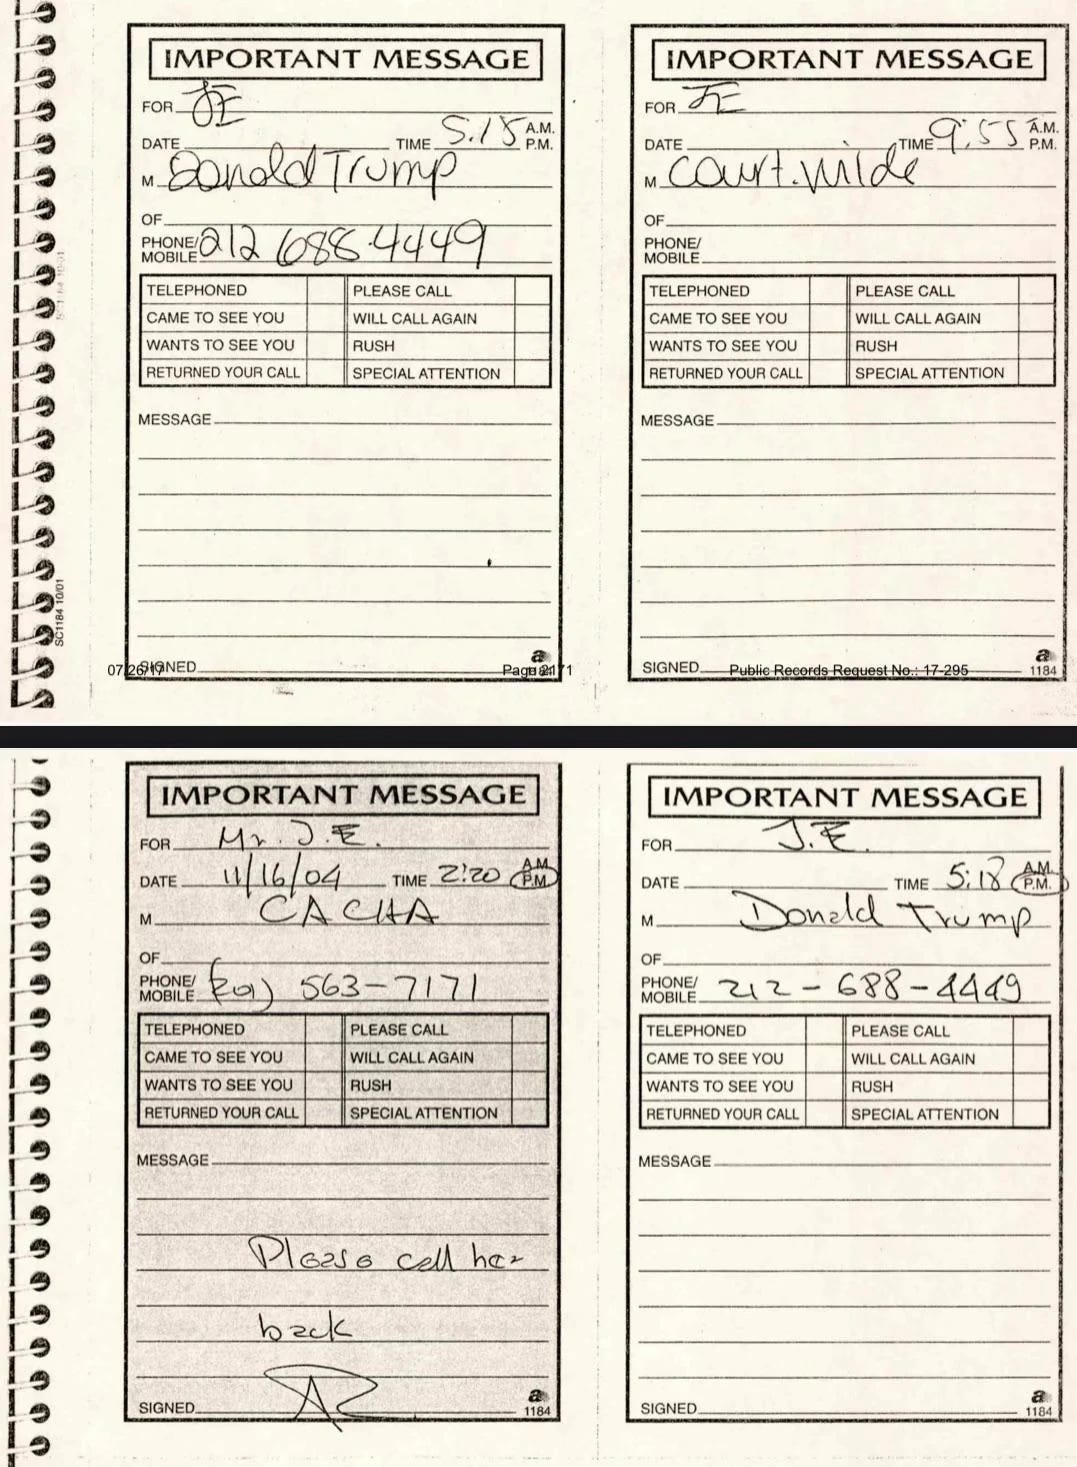 IMPORTANT MESSAGE
FOR JE
DATE TIME 5:15 A.M. P.M.
M Donald Trump
OF
PHONE/MOBILE 212 688-4449
TELEPHONED PLEASE CALL
CAME TO SEE YOU WILL CALL AGAIN
WANTS TO SEE YOU RUSH
RETURNED YOUR CALL SPECIAL ATTENTION
MESSAGE
SIGNED
07/26/17
Page 2171
1184
SC1184 10/01
IMPORTANT MESSAGE
FOR JE
DATE TIME 9:55 A.M. P.M.
M Court. Wilde
OF
PHONE/MOBILE
TELEPHONED PLEASE CALL
CAME TO SEE YOU WILL CALL AGAIN
WANTS TO SEE YOU RUSH
RETURNED YOUR CALL SPECIAL ATTENTION
MESSAGE
SIGNED
Public Records Request No.: 17-295
a
1184
IMPORTANT MESSAGE
FOR Mr. J.E.
DATE 11/16/04 TIME 2:20 A.M. P.M.
M CACHA
OF
PHONE/MOBILE 563-7171
TELEPHONED PLEASE CALL
CAME TO SEE YOU WILL CALL AGAIN
WANTS TO SEE YOU RUSH
RETURNED YOUR CALL SPECIAL ATTENTION
MESSAGE
Please call her
back
SIGNED
a
1184
IMPORTANT MESSAGE
FOR J.E.
DATE TIME 5:18 A.M. P.M.
M Donald Trump
OF
PHONE/MOBILE 212-688-4449
TELEPHONED PLEASE CALL
CAME TO SEE YOU WILL CALL AGAIN
WANTS TO SEE YOU RUSH
RETURNED YOUR CALL SPECIAL ATTENTION
MESSAGE
SIGNED
a
1184